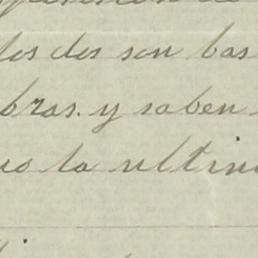 los dos son bas
bras. y saben
la ultim